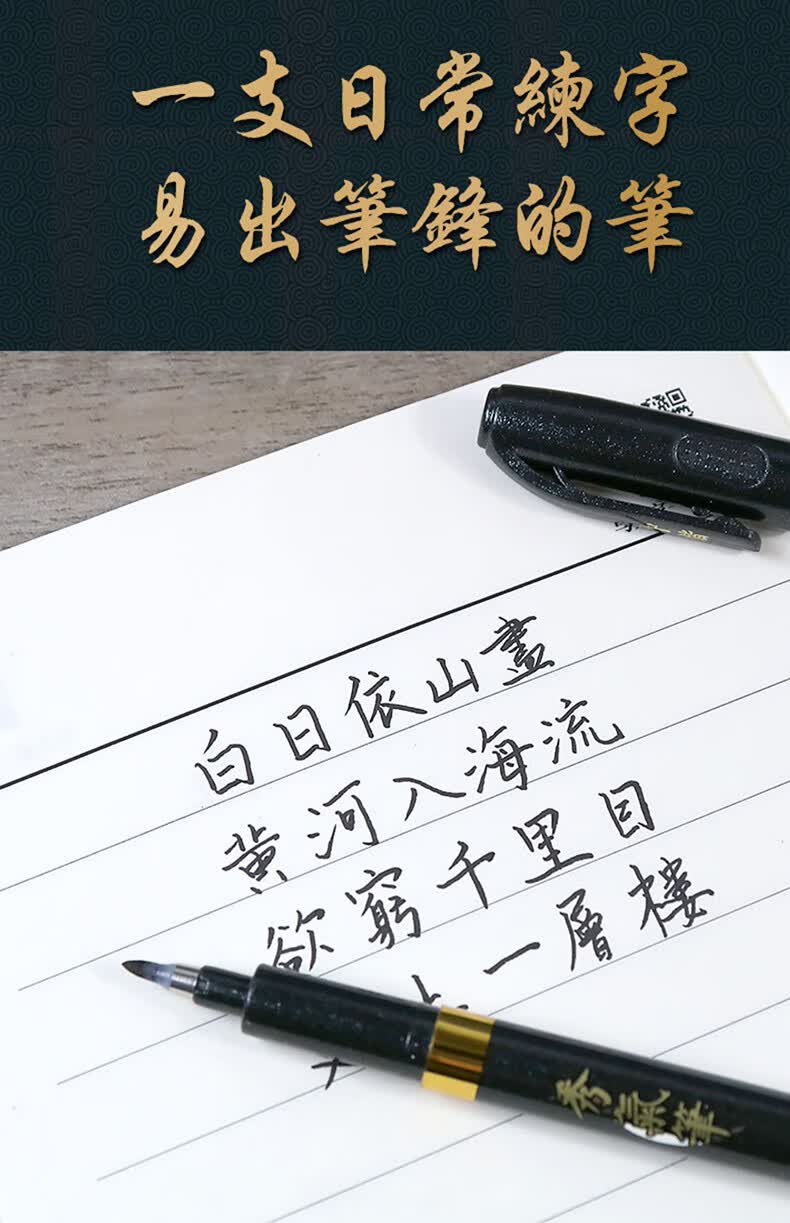 一支日常練字
易出筆鋒的筆
白日依山盡
黃河入海流
欲窮千里目
上一層樓
秀氣筆